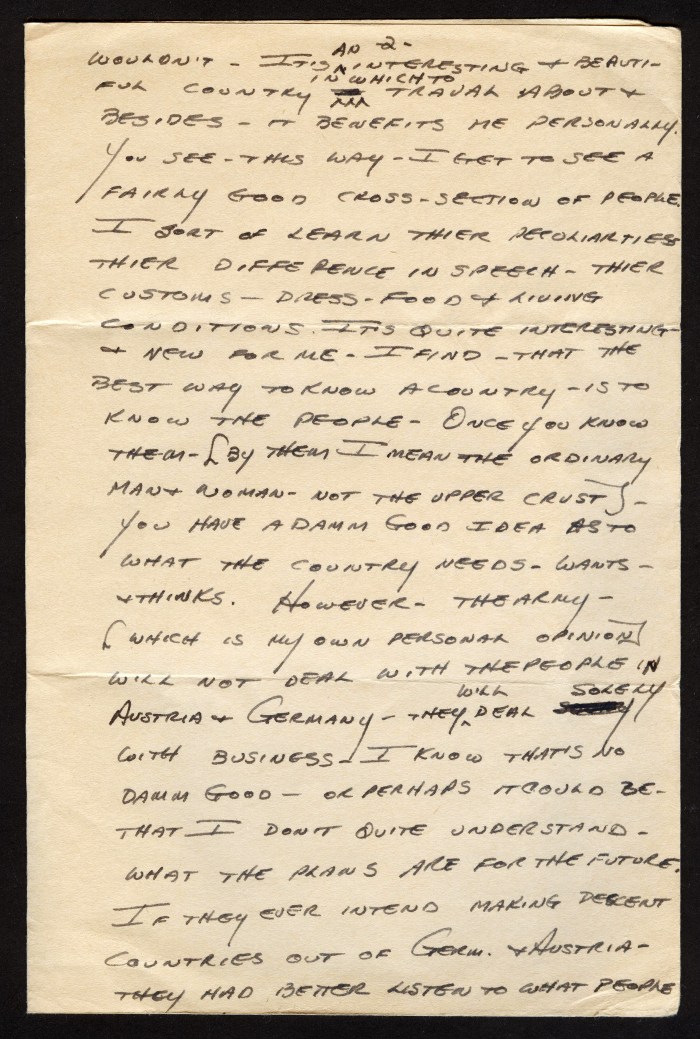 -2-
WOULDN'T - IT'S AN INTERESTING & BEAUTI-
FUL COUNTRY IN WHICH TO TRAVAL ABOUT &
BESIDES - IT BENEFITS ME PERSONALLY.
YOU SEE - THIS WAY - I GET TO SEE A
FAIRLY GOOD CROSS-SECTION OF PEOPLE.
I SORT OF LEARN THIER PECULIARTIES
THIER DIFFERENCE IN SPEECH - THIER
CUSTOMS - DRESS - FOOD & LIVING
CONDITIONS. IT'S QUITE INTERESTING
& NEW FOR ME - I FIND - THAT THE
BEST WAY TO KNOW A COUNTRY - IS TO
KNOW THE PEOPLE - ONCE YOU KNOW
THEM - [BY THEM I MEAN THE ORDINARY
MAN & WOMAN - NOT THE UPPER CRUST] -
YOU HAVE A DAMM GOOD IDEA AS TO
WHAT THE COUNTRY NEEDS - WANTS -
& THINKS. HOWEVER - THE ARMY -
[WHICH IS MY OWN PERSONAL OPINION]
WILL NOT DEAL WITH THE PEOPLE IN
AUSTRIA & GERMANY - THEY WILL DEAL SOLELY
WITH BUSINESS - I KNOW THAT'S NO
DAMM GOOD - OR PERHAPS IT COULD BE -
THAT I DON'T QUITE UNDERSTAND -
WHAT THE PLANS ARE FOR THE FUTURE.
IF THEY EVER INTEND MAKING DESCENT
COUNTRIES OUT OF GERM. & AUSTRIA -
THEY HAD BETTER LISTEN TO WHAT PEOPLE